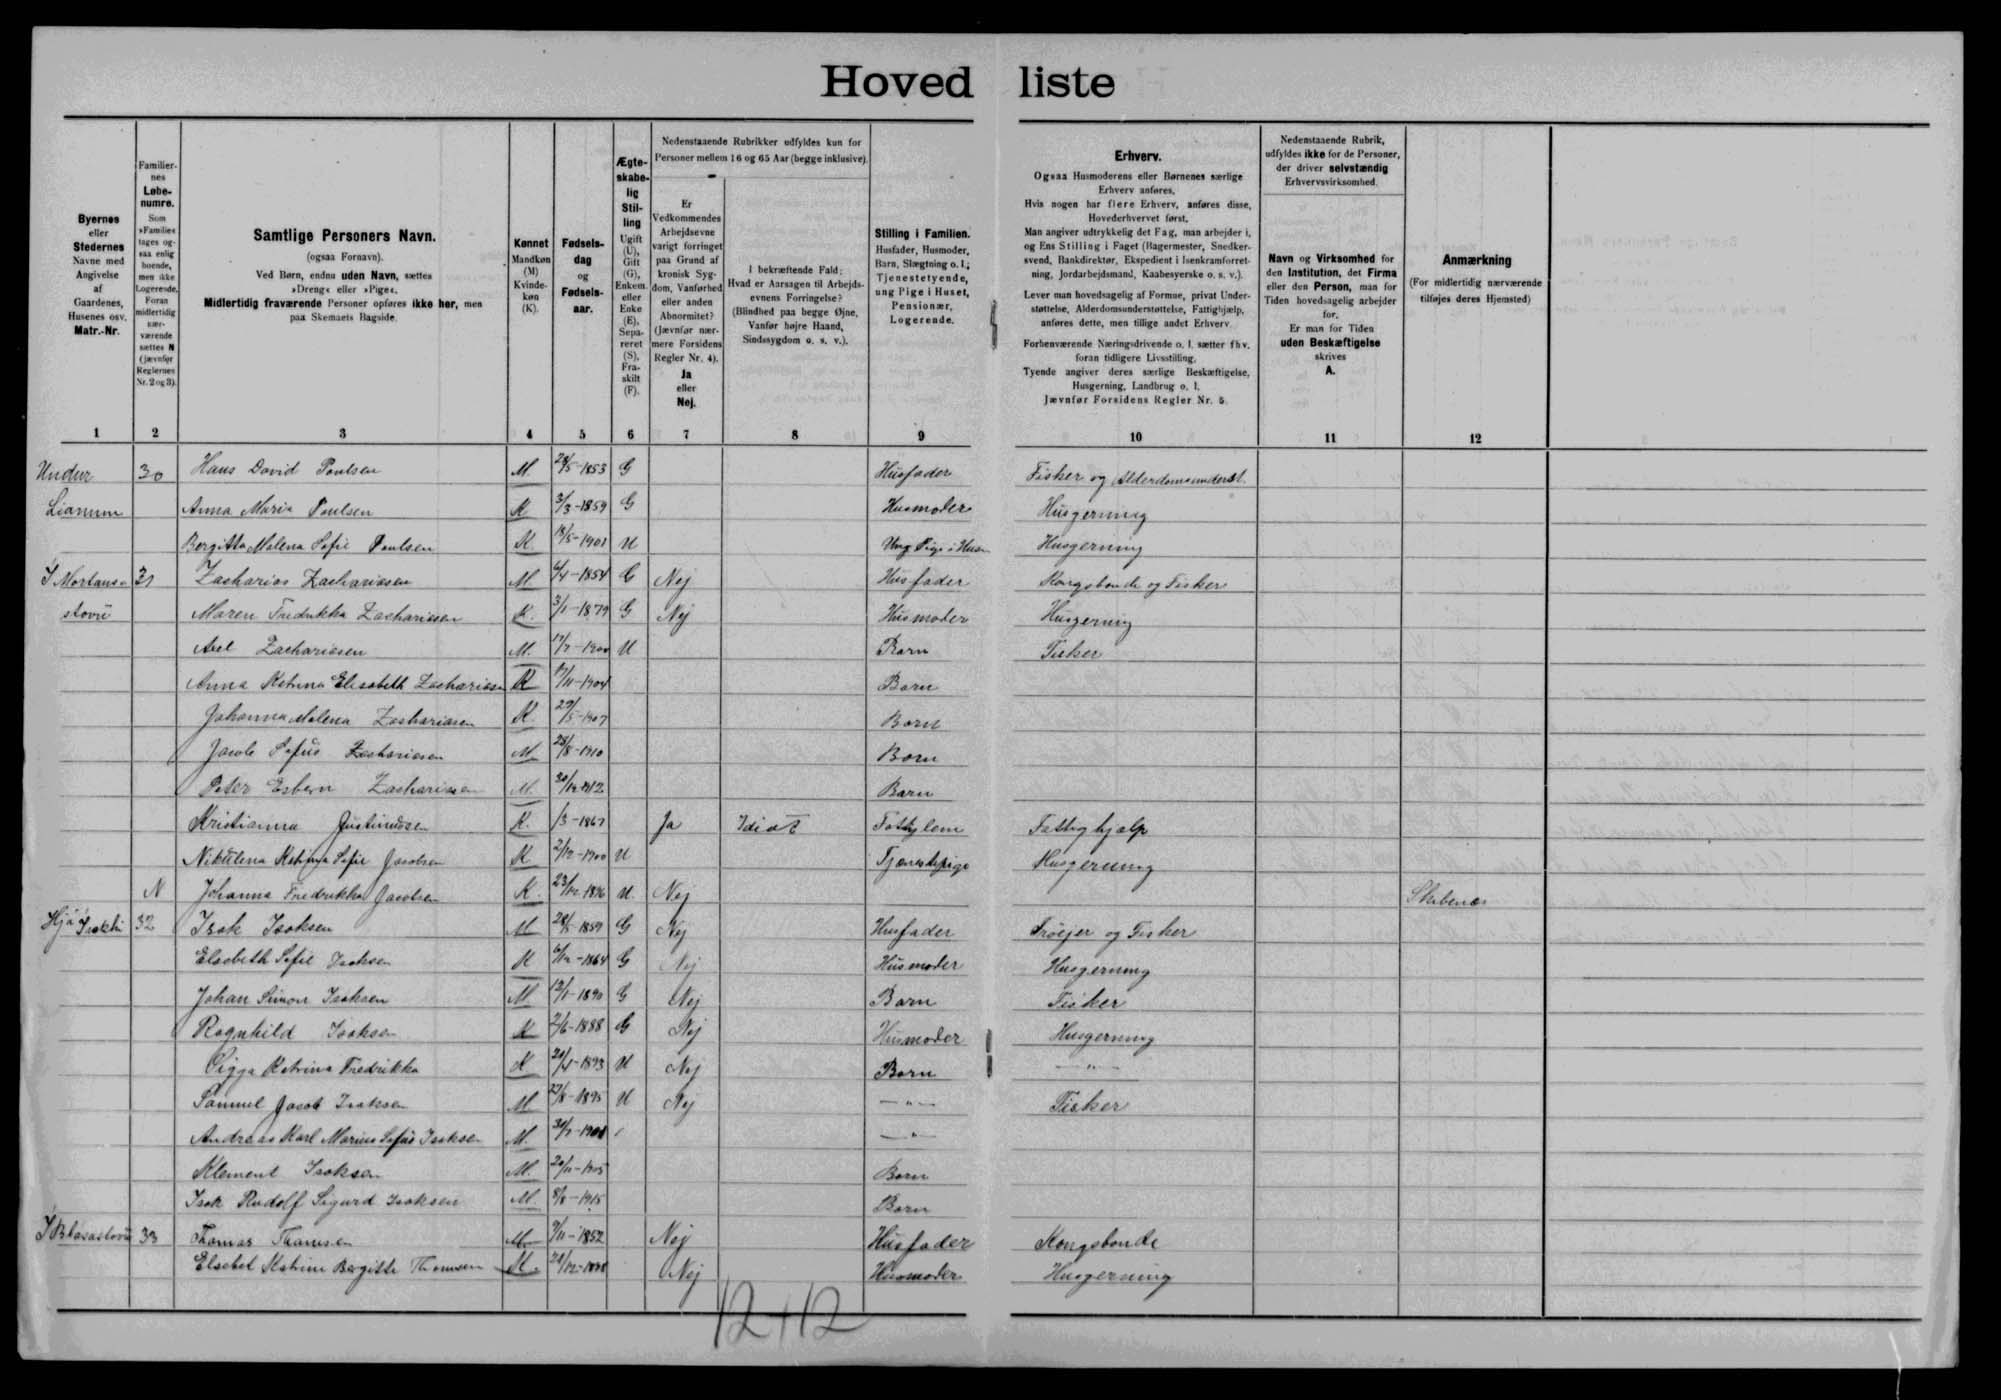 Hovedliste
Byernes eller Stedernes Navne med Angivelse af Gaardenes, Husenes osv. Matr.-Nr.
Familiernes Løbenumre. Som »Familie« tages ogsaa enlig boende, men ikke Logerende. Foran midlertidig nærværende sættes N (jævnfør Reglernes Nr. 2 og 3).
Samtlige Personers Navn.
(ogsaa Fornavn).
Ved Børn, endnu uden Navn, sættes
»Dreng« eller »Pige«.
Midlertidig fraværende Personer opføres ikke her, men
paa Skemaets Bagside.
Kønnet Mandkøn (M) Kvindekøn (K).
Fødselsdag og Fødselsaar.
Ægteskabelig Stilling Ugift (U), Gift (G), Enkem. eller Enke (E), Separeret (S), Fraskilt (F).
Nedenstaaende Rubrikker udfyldes kun for
Personer mellem 16 og 65 Aar (begge inklusive).
Er Vedkommendes Arbejdsevne varigt forringet paa Grund af kronisk Sygdom, Vanførhed eller anden Abnormitet? (Jævnfør nærmere Forsidens Regler Nr. 4). Ja eller Nej.
I bekræftende Fald: Hvad er Aarsagen til Arbejdsevnens Forringelse? (Blindhed paa begge Øjne, Vanfør højre Haand, Sindssygdom o. s. v.).
Stilling i Familien. Husfader, Husmoder, Barn, Slægtning o. l.; Tjenestetyende, ung Pige i Huset, Pensionær, Logerende.
Erhverv.
Ogsaa Husmoderens eller Børnenes særlige
Erhverv anføres.
Hvis nogen har flere Erhverv, anføres disse,
Hovederhvervet først.
Man angiver udtrykkelig det Fag, man arbejder i,
og Ens Stilling i Faget (Bagermester, Snedkersvend, Bankdirektør, Ekspedient i Isenkramforretning, Jordarbejdsmand, Kaabesyerske o. s. v.).
Lever man hovedsagelig af Formue, privat Understøttelse, Alderdomsunderstøttelse, Fattighjælp,
anføres dette, men tillige andet Erhverv.
Forhenværende Næringsdrivende o. l. sætter fhv.
foran tidligere Livsstilling.
Tyende angiver deres særlige Beskæftigelse,
Husgerning, Landbrug o. l.
Jævnfør Forsidens Regler Nr. 5.
Nedenstaaende Rubrik,
udfyldes ikke for de Personer,
der driver selvstændig
Erhvervsvirksomhed.
Navn og Virksomhed for
den Institution, det Firma
eller den Person, man for
Tiden hovedsagelig arbejder
for.
Er man for Tiden
uden Beskæftigelse
skrives
A.
Anmærkning
(For midlertidig nærværende
tilføjes deres Hjemsted)
1 2 3 4 5 6 7 8 9 10 11 12
Undur 30 Hans David Poulsen M 28/5-1853 G Husfader Fisker og Alderdomsunderst.
Lianum Anna Maria Poulsen K 3/3-1859 G Husmoder Husgerning
Bergitta Malena Sofie Poulsen K. 18/5-1901 U Ung Pige i Huse Husgerning
I Mortans- 31 Zacharias Zachariasen M 4/4-1854 G Nej Husfader Kongsbonde og Fisker
stovu Maren Fredrikka Zachariasen K. 3/1-1879 G Nej Husmoder Husgerning
Axel Zachariasen M. 17/7-1900 U Barn Fisker
Anna Katrina Elisabeth Zachariasen K 17/11-1904 Barn
Johanna Malena Zachariasen K. 29/5-1907 Barn
Jacob Sofus Zachariasen M 28/8-1910 Barn
Peter Esbern Zachariasen M. 30/12-1912 Barn
Kristianna Justinussen K. 1/3-1867 Ja Idiot Fattiglem Fattighjælp
Nikulina Katrina Sofie Jacobsen K 2/12-1900 U Tjenestepige Husgerning
N Johanna Fredrikka Jacobsen K. 23/12-1896 U. Nej Skibenæs
Hjá Isakki 32 Isak Isaksen M 28/5-1859 G Nej Husfader Trøejer og Fisker
Elsebeth Sofie Isaksen K 6/12-1864 G Nej Husmoder Husgerning
Johan Simon Isaksen M 12/1-1890 G Nej Barn Fisker
Ragnhild Isaksen K 2/6-1888 G Nej Husmoder Husgerning
Katrina Fredrikka K 20/4-1893 U Nej Barn —"—
Samuel Jacob Isaksen M 27/8-1895 U Nej —"— Fisker
Andreas Karl Marius Sofus Isaksen M. —"—
Klement Isaksen M. 20/11-1905 Barn
Isak Rudolf Sigurd Isaksen M. 8/8-1915 Barn
I Blásastovu 33 Thomas Thomsen M 9/11-1852 Nej Husfader Kongsbonde
Elsebet Katrine Bergitte Thomsen K. Nej Husmoder Husgerning
12+12